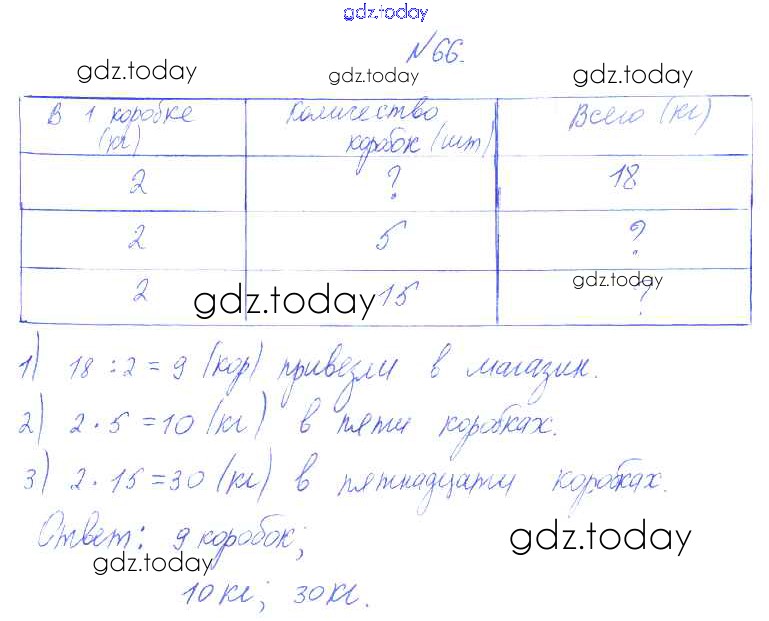 gdz.today
№66.
gdz.today gdz.today gdz.today
В 1 коробке (кг) Количество коробок (шт) Всего (кг)
2 ? 18
2 5 ?
gdz.today
2 15 ?
gdz.today
1) 18 : 2 = 9 (кор) привезли в магазин.
2) 2 · 5 = 10 (кг) в пяти коробках.
3) 2 · 15 = 30 (кг) в пятнадцати коробках.
Ответ: 9 коробок;
gdz.today gdz.today
10 кг; 30 кг.